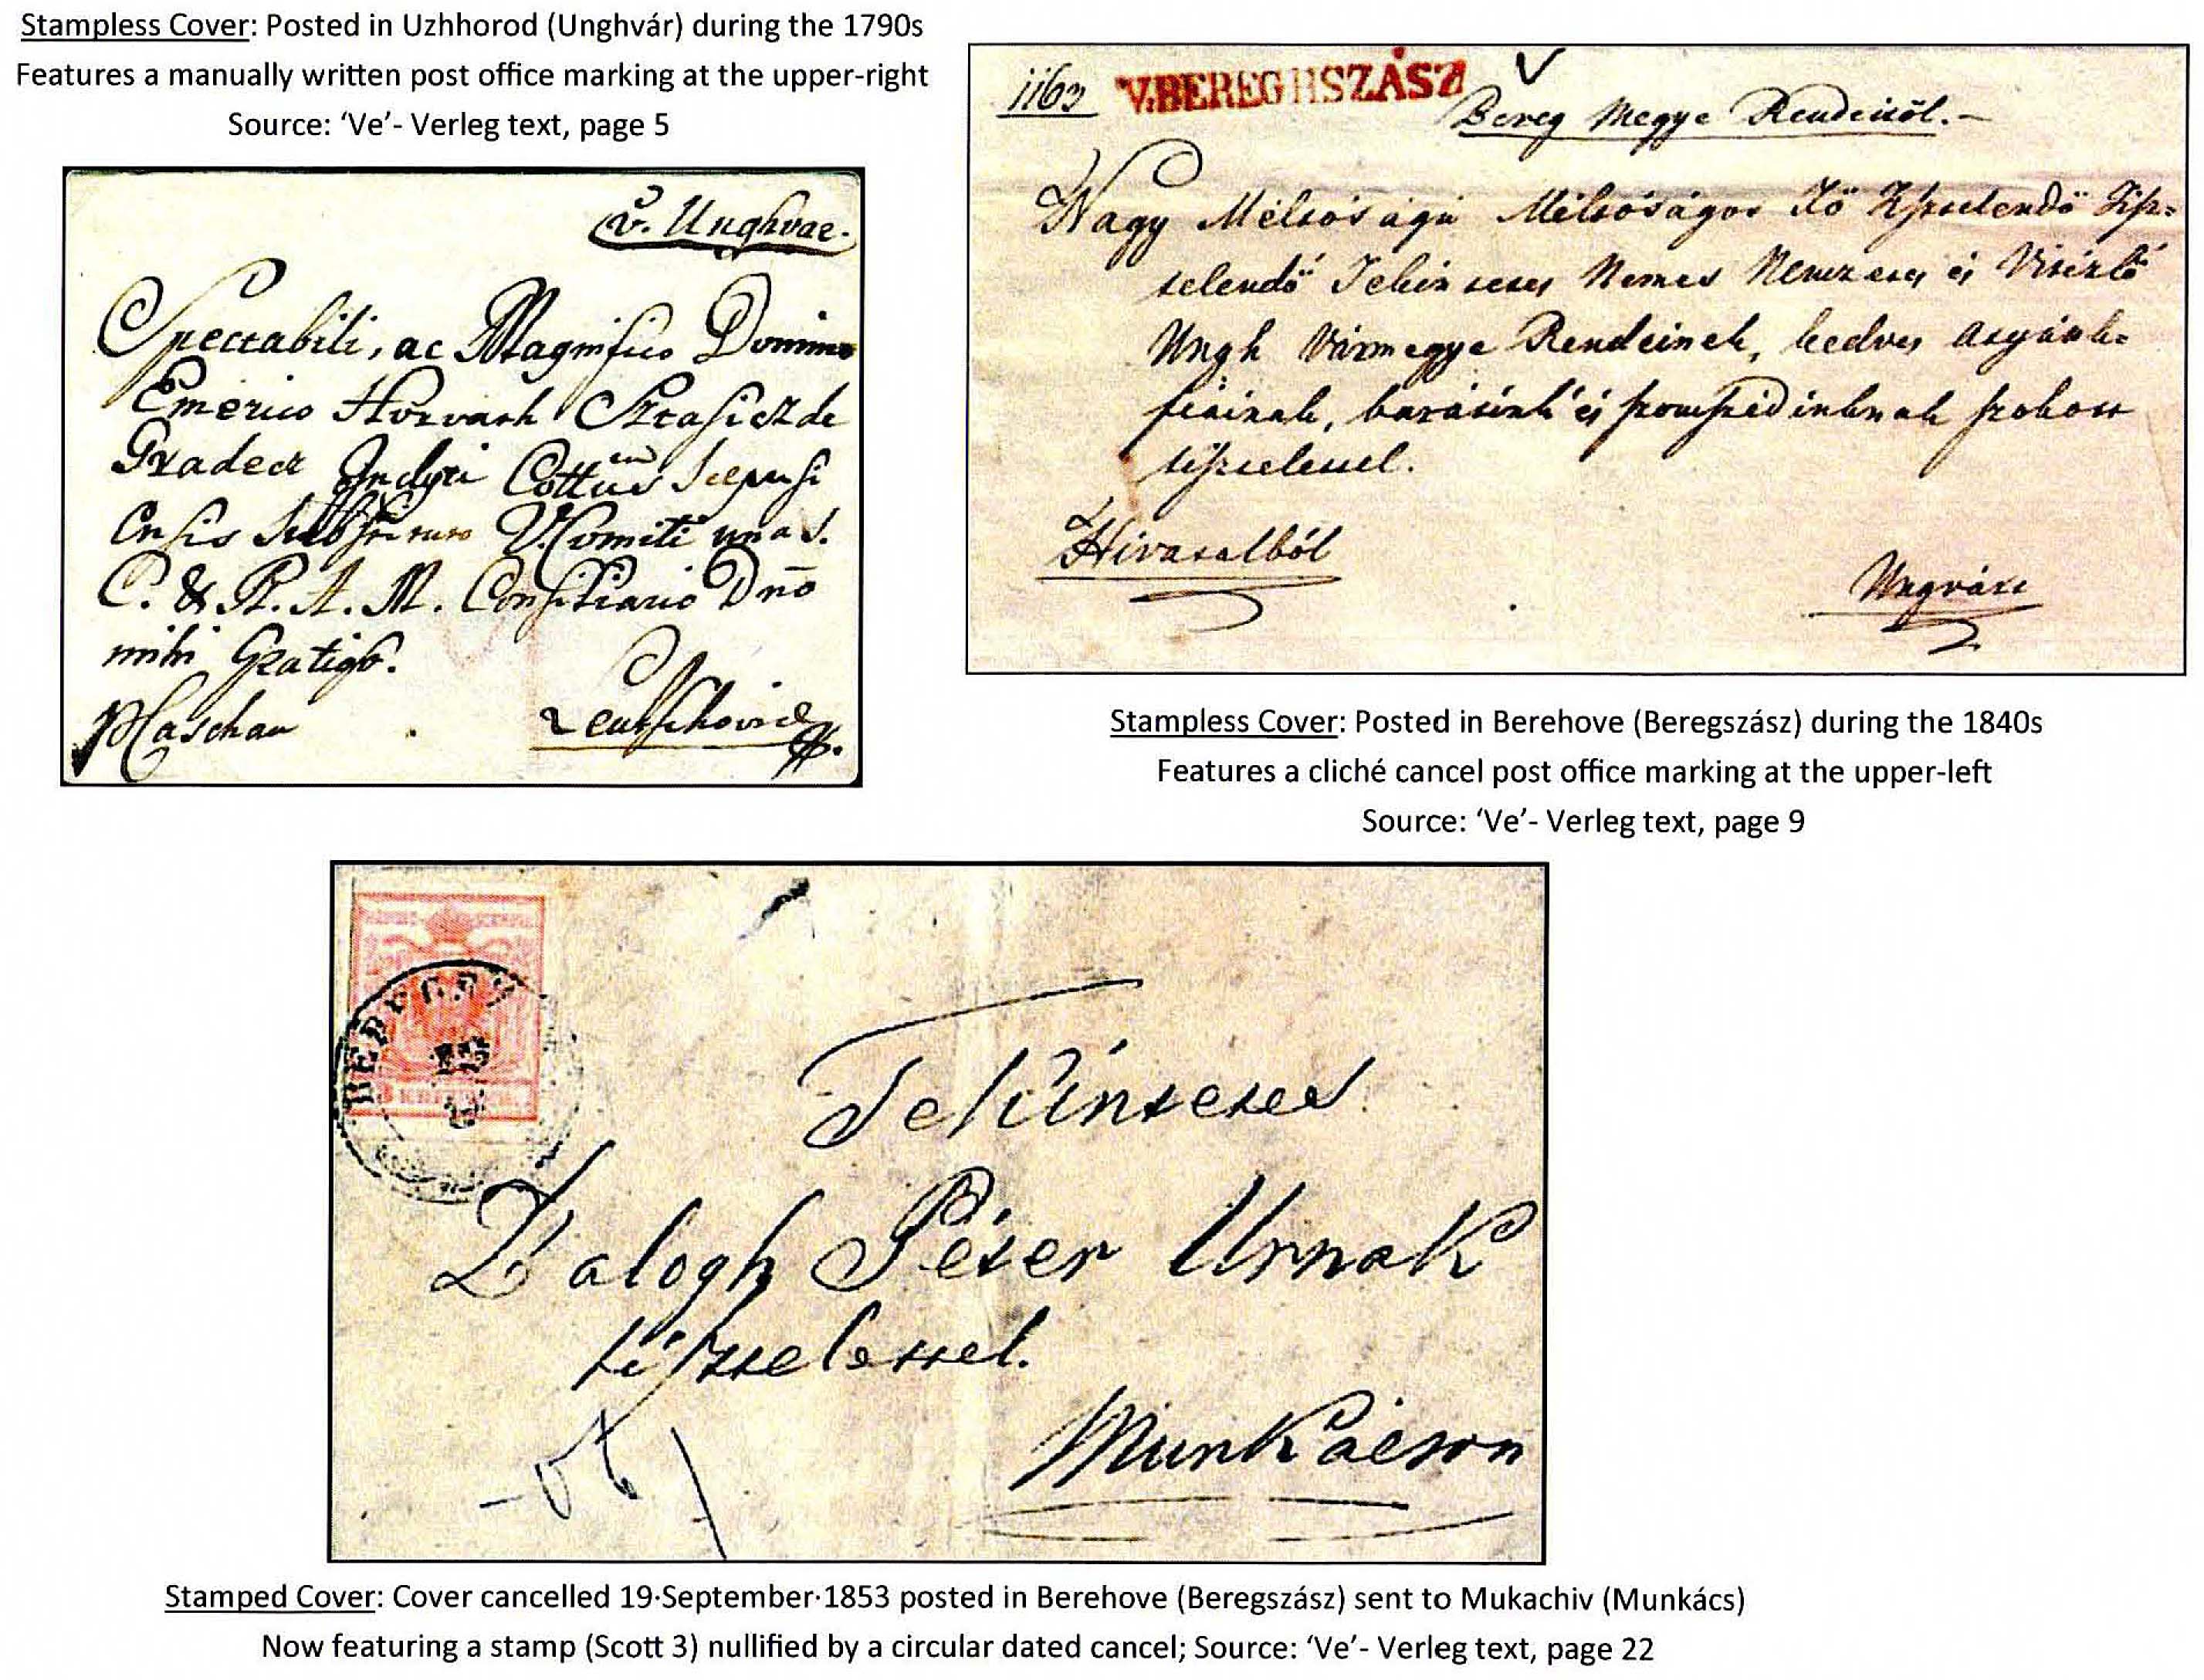 Stampless Cover: Posted in Uzhhorod (Unghvár) during the 1790s
Features a manually written post office marking at the upper-right
Source: ‘Ve’- Verleg text, page 5
v. Unghvar.
Spectabili, ac Magnifico Domino
Emerico Horvath Sztasicz de
Gradecz Cottus Scepusi
Ensis V.Comiti
C. & R. A. M. Consiliario Dno
mihi Gratiss.
Caschau
Leutschoviae
1163 V.BEREGHSZÁSZ
Bereg Megye Rendeitöl.-
Nagy Méltóságú Méltóságos Fő Tisztelendő Tisz=
telendő Tekintetes Nemes Nemzetes és Vitézlő
Ungh Vármegye Rendeinek, kedves Atyánk=
fiainak, barátink és szomszédinknak szokott
tisztelettel.
Hivatalból
Ungvárt
Stampless Cover: Posted in Berehove (Beregszász) during the 1840s
Features a cliché cancel post office marking at the upper-left
Source: ‘Ve’- Verleg text, page 9
BEREGSZ
Tekintetes
Balogh Péter Urnak
tisztelettel.
Munkácson
Stamped Cover: Cover cancelled 19·September·1853 posted in Berehove (Beregszász) sent to Mukachiv (Munkács)
Now featuring a stamp (Scott 3) nullified by a circular dated cancel; Source: ‘Ve’- Verleg text, page 22